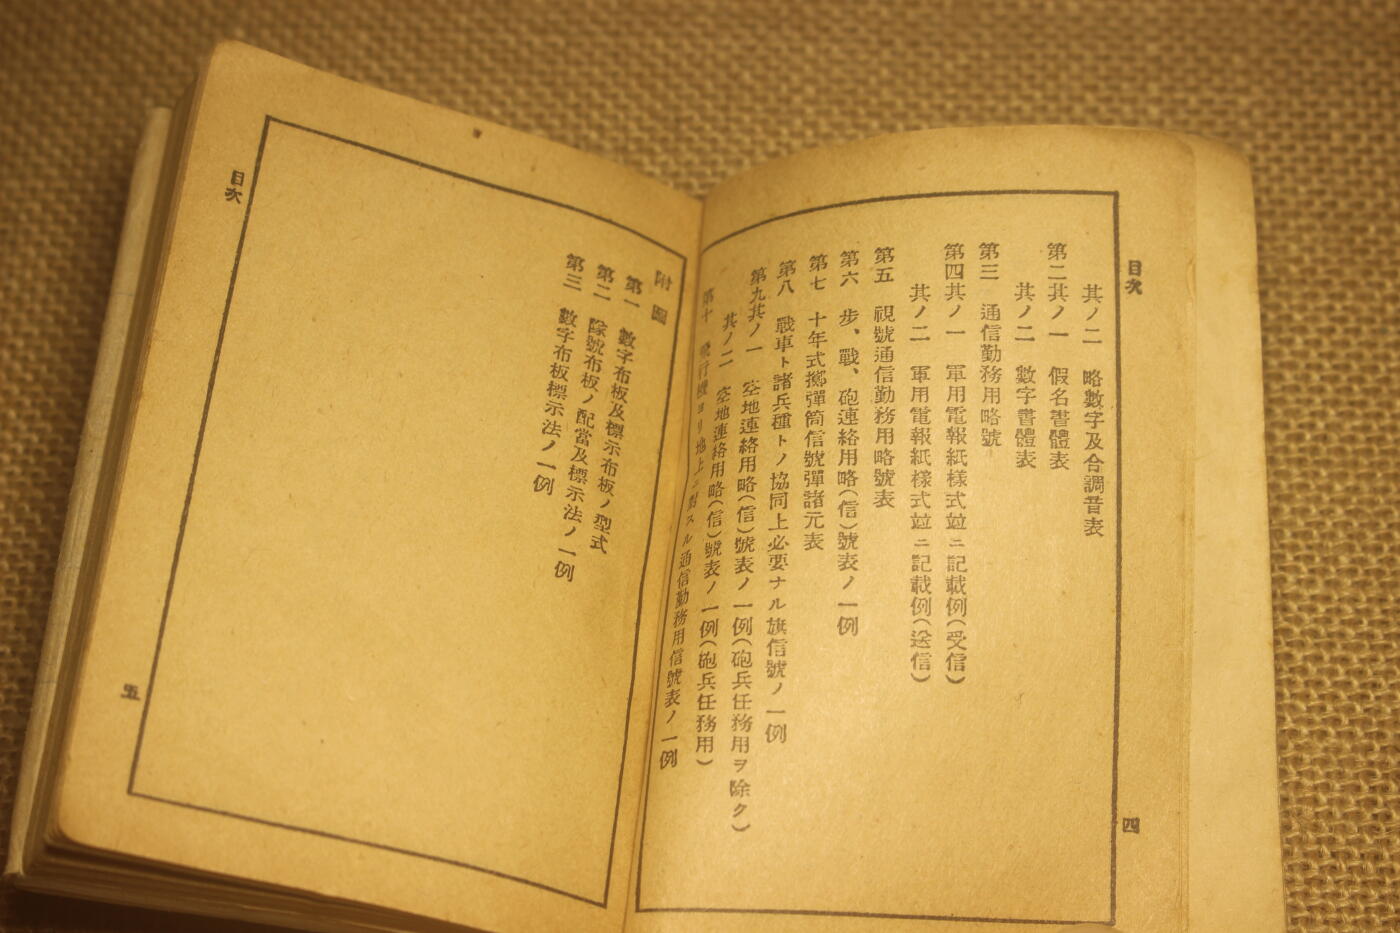 目次
其ノ二 略數字及合調音表
第二其ノ一 假名書體表
其ノ二 數字書體表
第三 通信勤務用略號
第四其ノ一 軍用電報紙樣式竝ニ記載例(受信)
其ノ二 軍用電報紙樣式竝ニ記載例(送信)
第五 視號通信勤務用略號表
第六 步、戰、砲連絡用略(信)號表ノ一例
第七 十年式擲彈筒信號彈諸元表
第八 戰車ト諸兵種トノ協同上必要ナル旗信號ノ一例
第九其ノ一 空地連絡用略(信)號表ノ一例(砲兵任務用ヲ除ク)
其ノ二 空地連絡用略(信)號表ノ一例(砲兵任務用)
第十 飛行機ヨリ地上ニ對スル通信勤務用信號表ノ一例
四
附圖
第一 數字布板及標示布板ノ型式
第二 隊號布板ノ配當及標示法ノ一例
第三 數字布板標示法ノ一例
目次
五